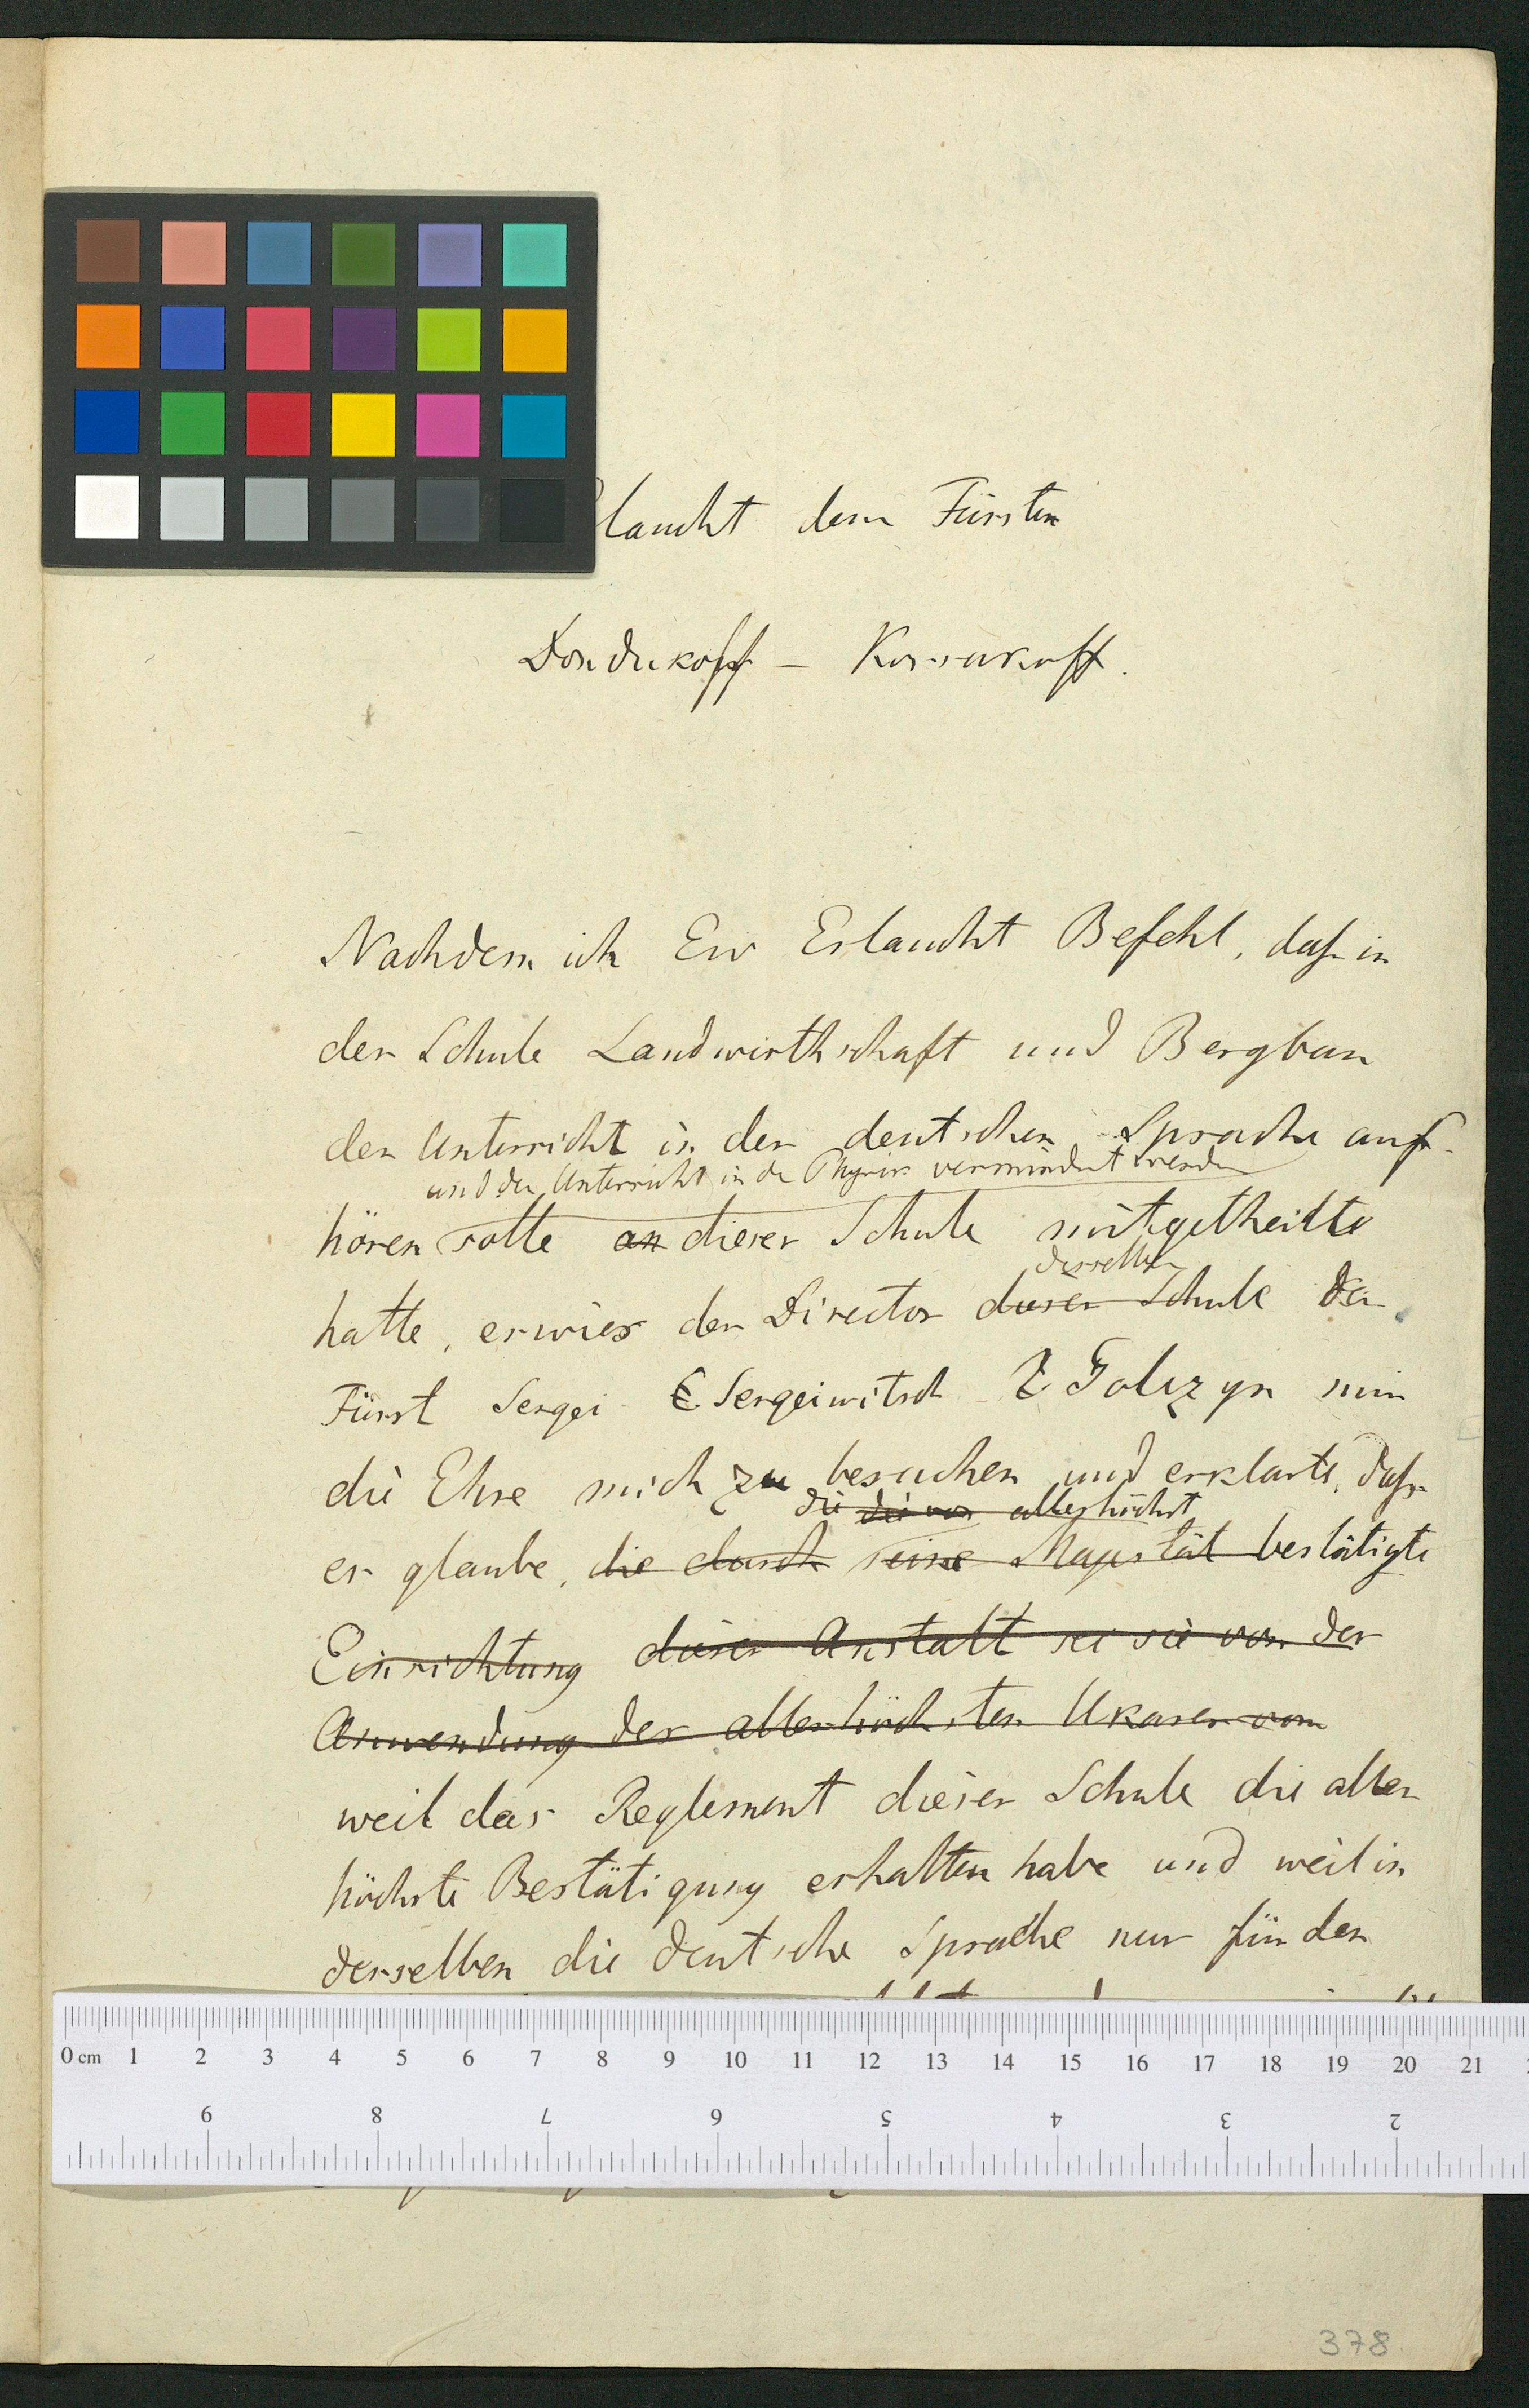 laucht dem Fürsten
Dondukoff – Korsakoff.
Nachdem ich Ew Erlaucht Befehl, daß in
der Schule Landwirthschaft und Bergbau
den Unterricht in der deutschen Sprache auf-
und der Unterricht in der Physik vermindert werden
hören solle an dieser Schule mitgetheilt
hatte, erwies der Director dieser Schule der
derselben
Fürst Sergei Sergeiwitsch Golizyn mir
die Ehre mich zu besuchen und erklärte, daß
die die von allerhöchst
er glaube, die durch seine Majestät bestätigte
Einrichtung dieser Anstalt sei sie von der
Anwendung des allerhöchsten Ukases vom
weil das Reglement dieser Schule die aller
höchste Bestätigung erhalten habe und weil in
derselben die deutsche Sprache nur für den
0 cm 1 2 3 4 5 6 7 8 9 10 11 12 13 14 15 16 17 18 19 20 21
9 8 7 6 5 4 3 2
378